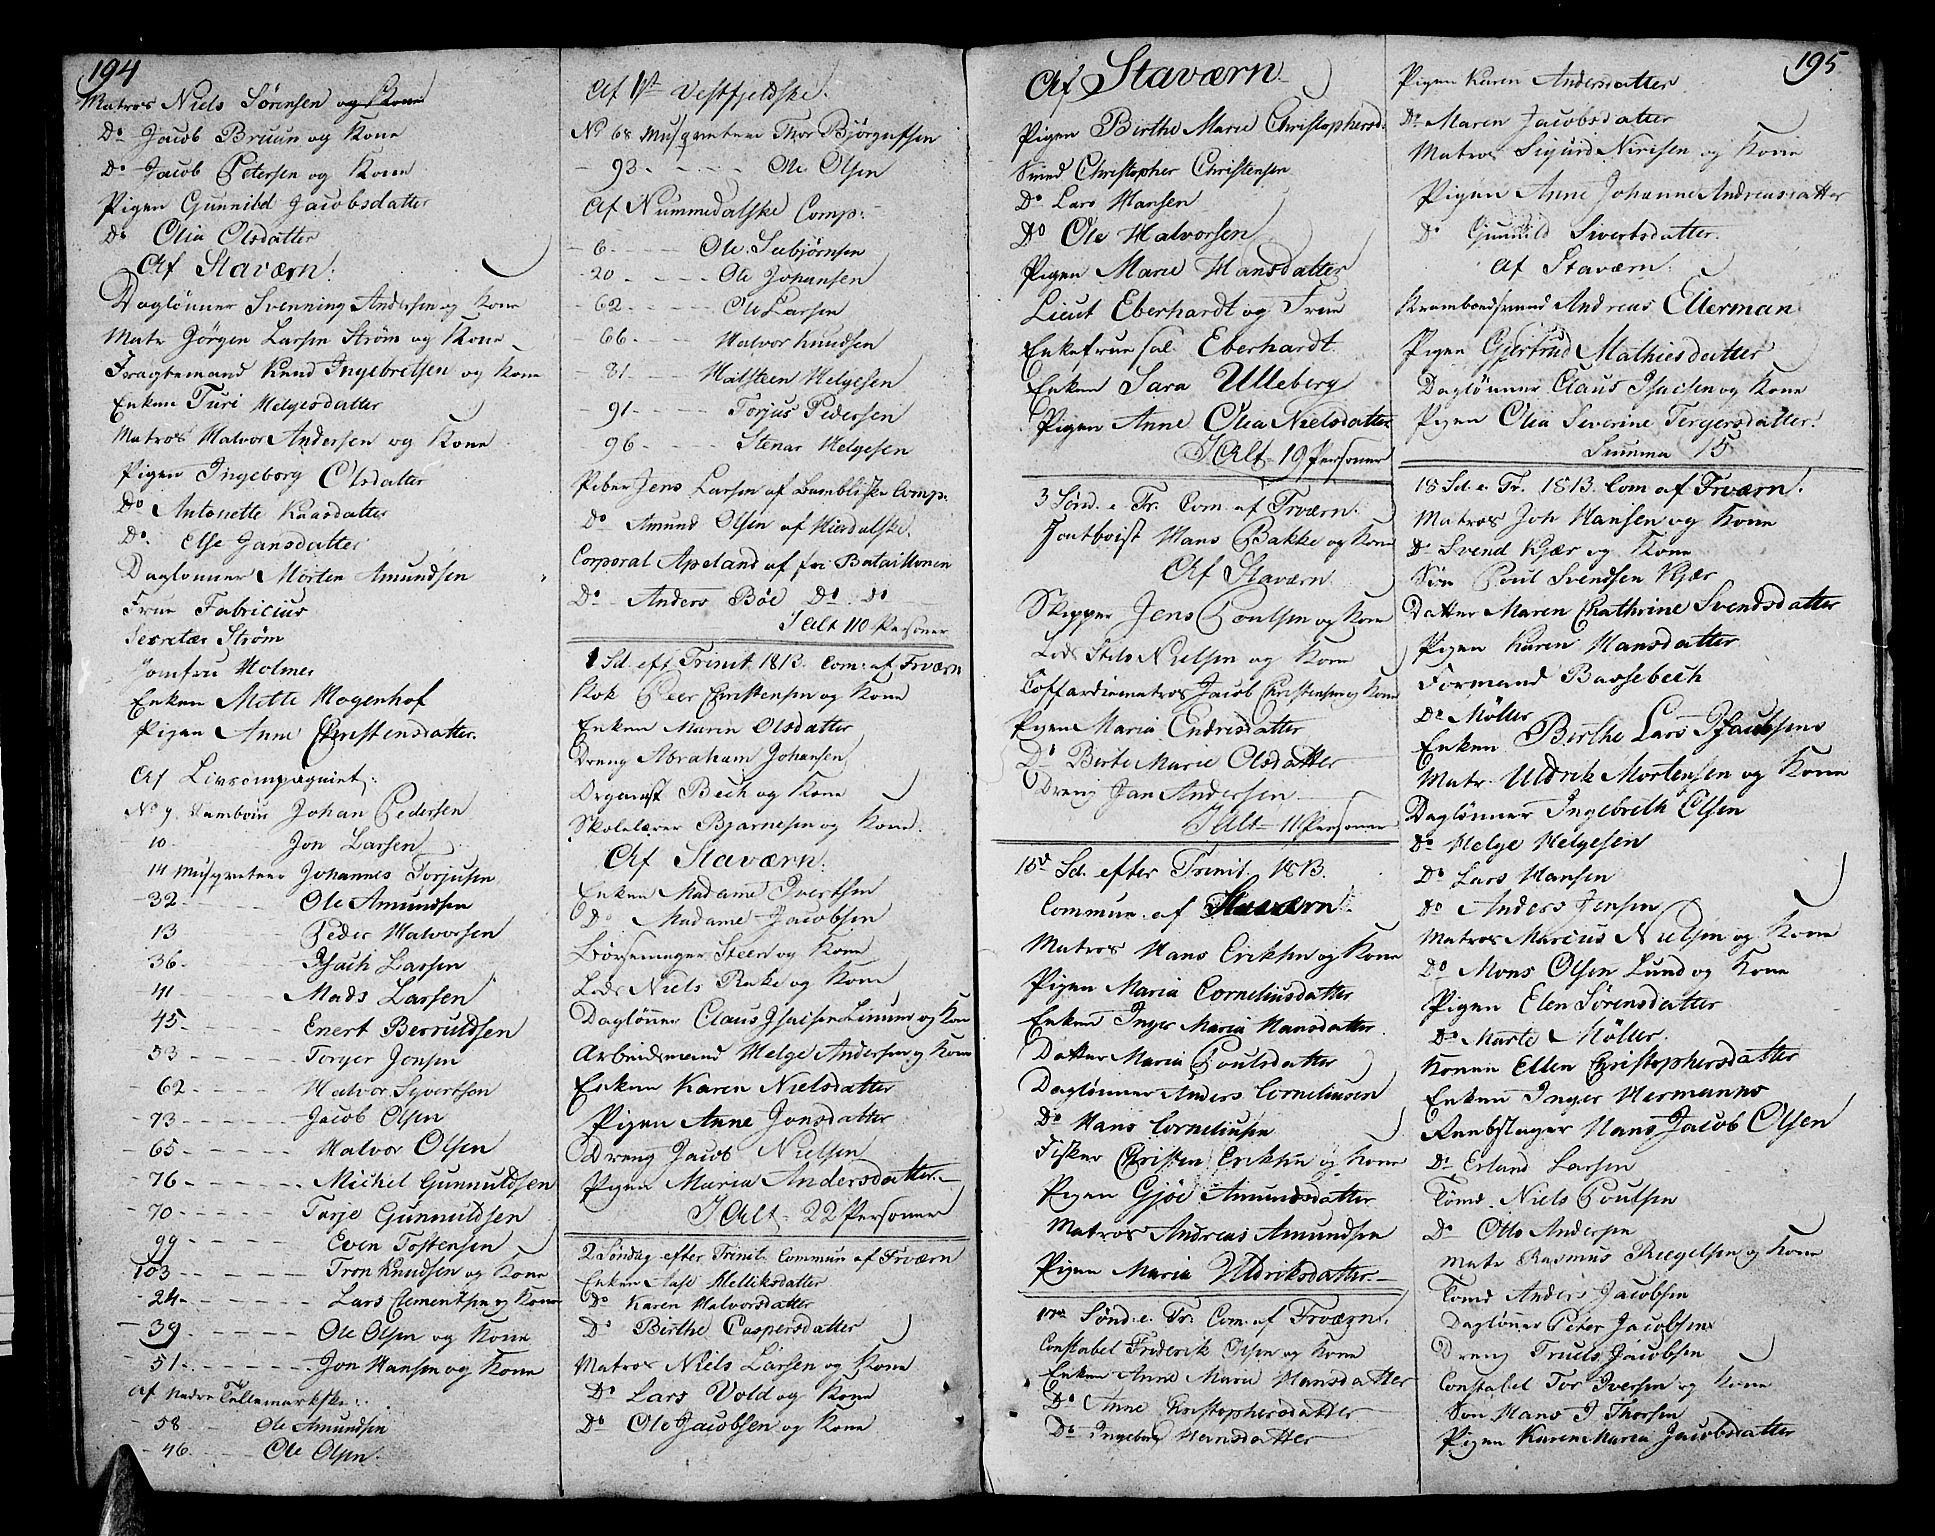 194
Matros Niels Sørensen og Kone
Do Jacob Bruun og Kone
Do Jacob Petersen og Kone
Pigen Gunnild Jacobsdatter
Do Olia Olsdatter
Af Staværn.
Daglønner Svenning Andersen og Kone
Matr Jørgen Larsen Strøm og Kone
Fragtemand Knud Ingebretsen og Kone
Enken Turi Helgesdatter
Matros Halvor Andersen og Kone
Pigen Ingeborg Olsdatter
Do Antonette Knudsdatter
Do Else Jansdatter
Daglønner Morten Amundsen
Frue Fabricius
Secretær Strøm
Jomfru Holmer
Enken Mette Mogenhof
Pigen Anne Christensdatter.
Af Livcompagniet:
No 9 Tambour Johan Pedersen
10 Jon Larsen
14 Musqveteer Johannes Torjusen
32 Ole Amundsen
13 Peder Halvorsen
36 Isach Larsen
41 Mads Larsen
45 Enert Berruldsen
53 Torger Jonsen
62 Halvor Syvertsen
73 Jacob Olsen
65 Halvor Olsen
76 Michel Gunnuldsen
70 Torje Gunnuldsen
99 Even Tostensen
103 Tron Knudsen og Kone
24 Lars Clementsen og Kone
39 Ole Olsen og Kone
51 Jon Hansen og Kone
Af Nedre Tellemarkske:
58 Ole Amundsen
46 Ole Olsen.
Af 1st Vestfjeldske.
No 68 Musqveteer Thor Bjørgufsen
93 Ole Olsen
Af Nummedalske Comp:
6 Ole Seebjørnsen
20 Ole Johansen
62 Ole Larsen
66 Halvor Knudsen
81 Halsteen Helgesen
91 Torjus Pedersen
96 Stenar Helgesen
Piber Jens Larsen af Bambleske Comp:
Do Amund Olsen af Hierdalske.
Corporal Apeland af for: Bataillonen
Do Anders Böe Do Do
I Alt 110 Personer
1 Sd. eft. Trinit. 1813. Com: af Frværn
Kok Peer Christensen og Kone
Enken Maren Olsdatter
Dreng Abraham Johansen
Organist Bech og Kone
Skolelærer Bjarnesen og Kone.
Af Staværn.
Enken Madame Ivertsen
Do Madame Jacobsen
Børsemager Steen og Kone
Lods Niels Rake og Kone
Daglønner Claus Isaksen Linum og Kone
Arbeidsmand Helge Andersen og Kone
Enken Karen Nielsdatter
Pigen Anne Jonsdatter
Dreng Jacob Nielsen
Pigen Maria Andersdatter
I Alt 22 Personer
2 Søndag efter Trinit. Commun. af Frværn
Enken Aase Melliksdatter
Do Karen Halvorsdatter
Do Birthe Caspersdatter
Matros Niels Larsen og Kone
Do Lars Vold og Kone
Do Ole Jacobsen og Kone
195
Af Staværn
Pigen Birthe Marie Christophersd.
Svend Christopher Christensen
Do Lars Hansen
Do Ole Halvorsen
Pigen Marie Hansdatter
Lieut Eberhardt og Frue
Enkefrue sal. Eberhardt.
Enken Sara Ulleberg
Pigen Anne Olea Nielsdatter
I Alt 19 Personer
3 Sønd. e. Tr. Com. af Frværn.
Houtboist Hans Bakke og Kone
Af Staværn
Skipper Jens Poulsen og Kone
Lods Nielsen og Kone
Coffardiematros Jacob Christensen og Kone
Pigen Maria Endresdatter
Do Birte Marie Olsdatter
Dreng Jan Andersen
I Alt 11 Personer
15d Sd. efter Trinit. 1813.
Commun. af Staværn.
Matros Hans Eriksen og Kone
Pigen Maria Corneliusdatter
Enken Inger Maria Hansdatter
Datter Maria Poulsdatter
Daglønner Anders Corneliusen
Do Hans Corneliusen
Fisker Christen Eriksen og Kone
Pigen Gjøe Amundsdatter
Matros Andreas Amundsen
Pigen Maria Uldriksdatter
17de Sønd. e. Tr. Com. af Frværn.
Constabel Friderik Olsen og Kone
Enken Anne Marie Hansdatter
Do Anne Christophersdatter
Do Ingeborg Hansdatter
Pigen Karen Andersdatter
Do Maren Jacobsdatter
Matros Sigurd Nirisen og Kone
Pigen Anne Johanne Andreasdatter
Do Gunnild Sivertsdatter.
Af Staværn.
Kramboedsvend Andreas Ellerman
Pigen Gjertrud Mathiesdatter
Daglønner Claus Isaksen og Kone
Pigen Olia Severine Tergersdatter.
Summa 15
18 Sd. e. Tr. 1813. Com. af Frværn.
Matros Joh Hansen og Kone
Do Svend Kjær og Kone
Søn Poul Svendsen Kjær
Datter Maren Cathrine Svendsdatter
Pigen Karen Hansdatter
Formand Bassebech
Do Møller
Enken Birthe Lars Isaachsens
Matr. Uldrik Mortensen og Kone
Daglønner Ingebreth Olsen
Do Helge Helgesen
Do Lars Hansen
Do Anders Jensen
Matros Marcus Nielsen og Kone
Do Mons Olsen Lund og Kone
Pigen Elen Sørensdatter
Do Marte Møller.
Konen Ellen Christophersdatter
Enken Inger Hermanns
Reebslager Hans Jacob Olsen
Do Erland Larsen
Tømd. Niels Poulsen
Do Otto Andersen
Matr Rasmus Riegelsen og Kone
Tømd Anders Jacobsen
Daglønner Peter Jacobsen
Dreng Truels Jacobsen
Constabel Tor Iversen og Kone
Søn Hans J Thorsen
Pigen Karen Maria Jacobsdatter